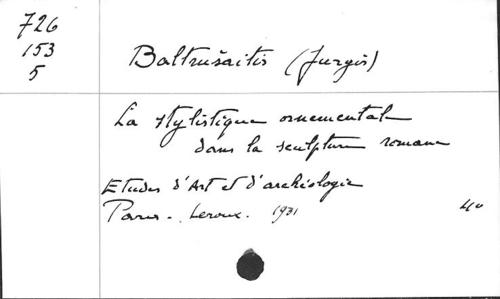 726
153
5
Baltrušaitis (Jurgis)
La stylistique ornementale
dans la sculpture romane
Etudes d'Art et d'archéologie
Paris - Leroux. 1931 4°